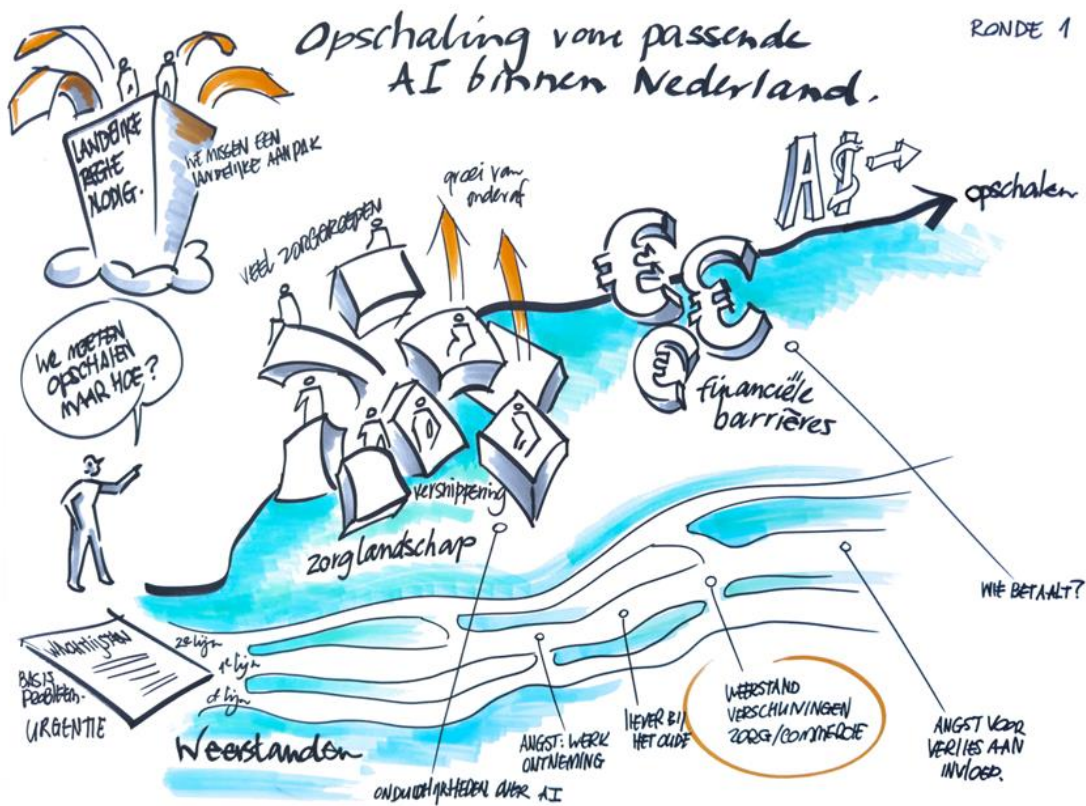 Opschaling van passende
AI binnen Nederland.
RONDE 1
LANDELIJKE
REGIE
NODIG.
WE MISSEN EEN
LANDELIJKE AANPAK
VEEL ZORGGROEPEN
groei van
onderaf
AI
opschalen
WE MOETEN
OPSCHALEN
MAAR HOE?
financiële
barrières
versnippering
zorglandschap
WIE BETAALT?
WACHTLIJSTEN
BASIS
PROBLEEM.
URGENTIE
2e lijn
1e lijn
0e lijn
Weerstanden
ONDUIDELIJKHEDEN OVER AI
ANGST: WERK
ONTNEMING
LIEVER BIJ
HET OUDE
WEERSTAND
VERSCHUIVINGEN
ZORG/COMMERCIE
ANGST VOOR
VERLIES AAN
INVLOED.